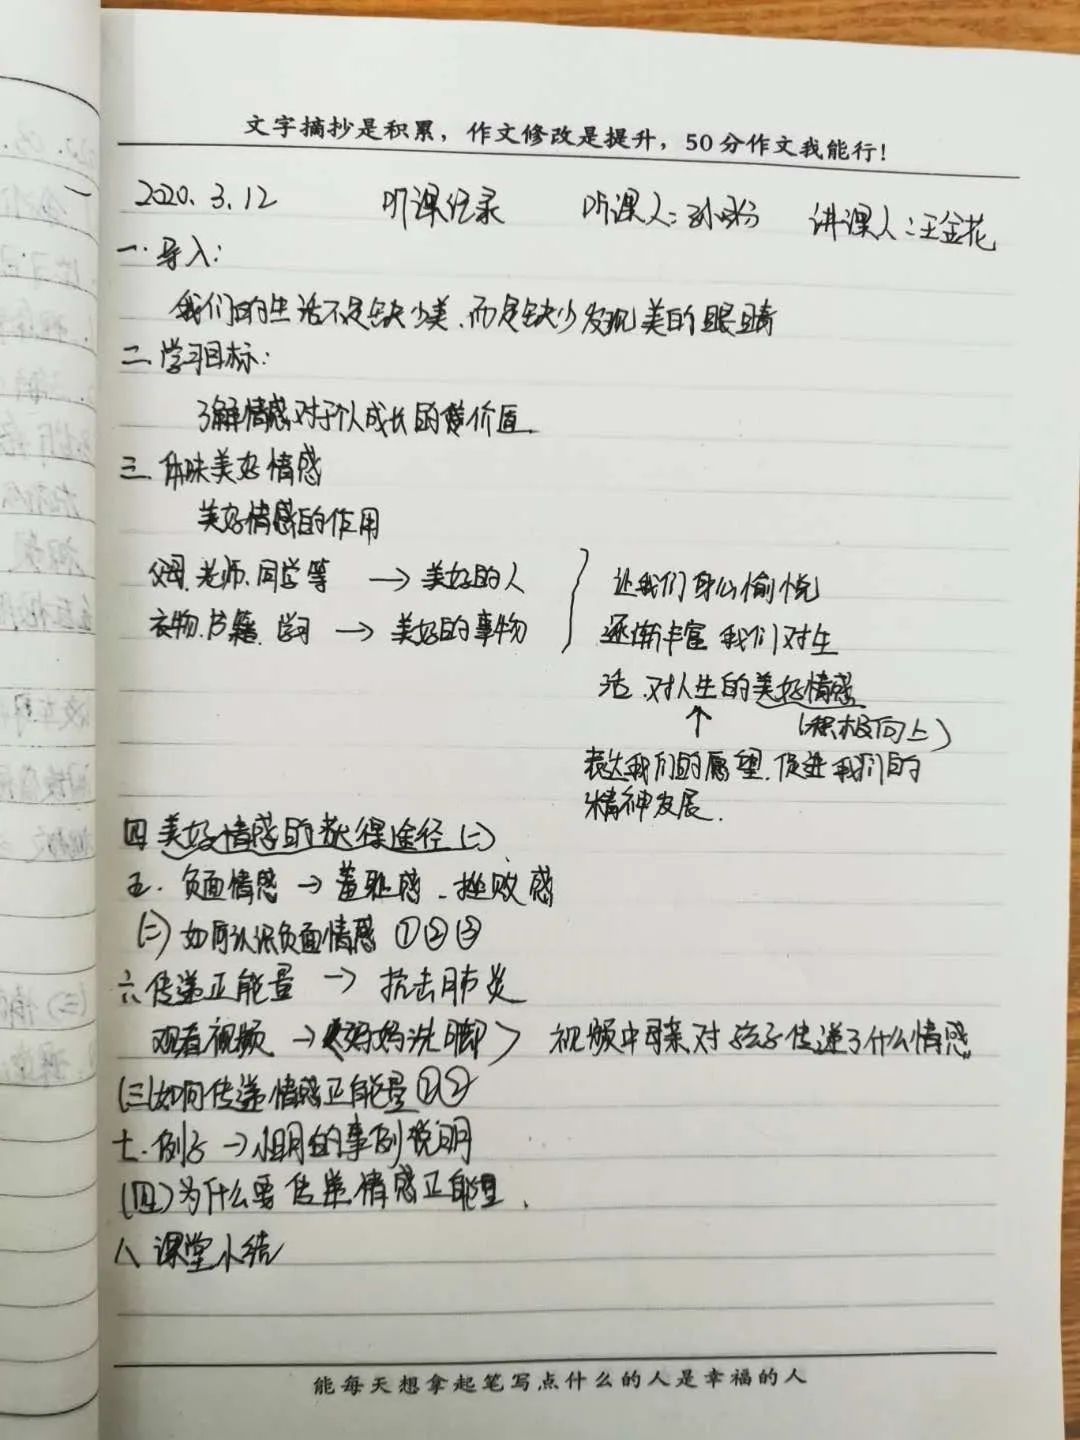 文字摘抄是积累，作文修改是提升，50分作文我能行！
2020.3.12 听课纪录 听课人：孙 讲课人：王金花
一.导入：
我们的生活不是缺少美.而是缺少发现美的眼睛
二.学习目标：
了解情感对于个人成长的价值.
三.体味美好情感
美好情感的作用
父母.老师.同学等 → 美好的人
衣物.书籍.学习 → 美好的事物
让我们身心愉悦
逐渐丰富我们对生
活.对人生的美好情感
↑ (积极向上)
表达我们的愿望.促进我们的
精神发展.
四 美好情感的获得途径(一)
五.负面情感 → 羞耻感.挫败感
(二)如何认识负面情感 ①②③
六.传递正能量 → 抗击肺炎
观看视频 → 《妈妈洗脚》 视频中母亲对孩子传递了什么情感
(三)如何传递情感正能量①②
七.例子 → 小明的事例说明
(四)为什么要传递情感正能量.
八 课堂小结
能每天想拿起笔写点什么的人是幸福的人